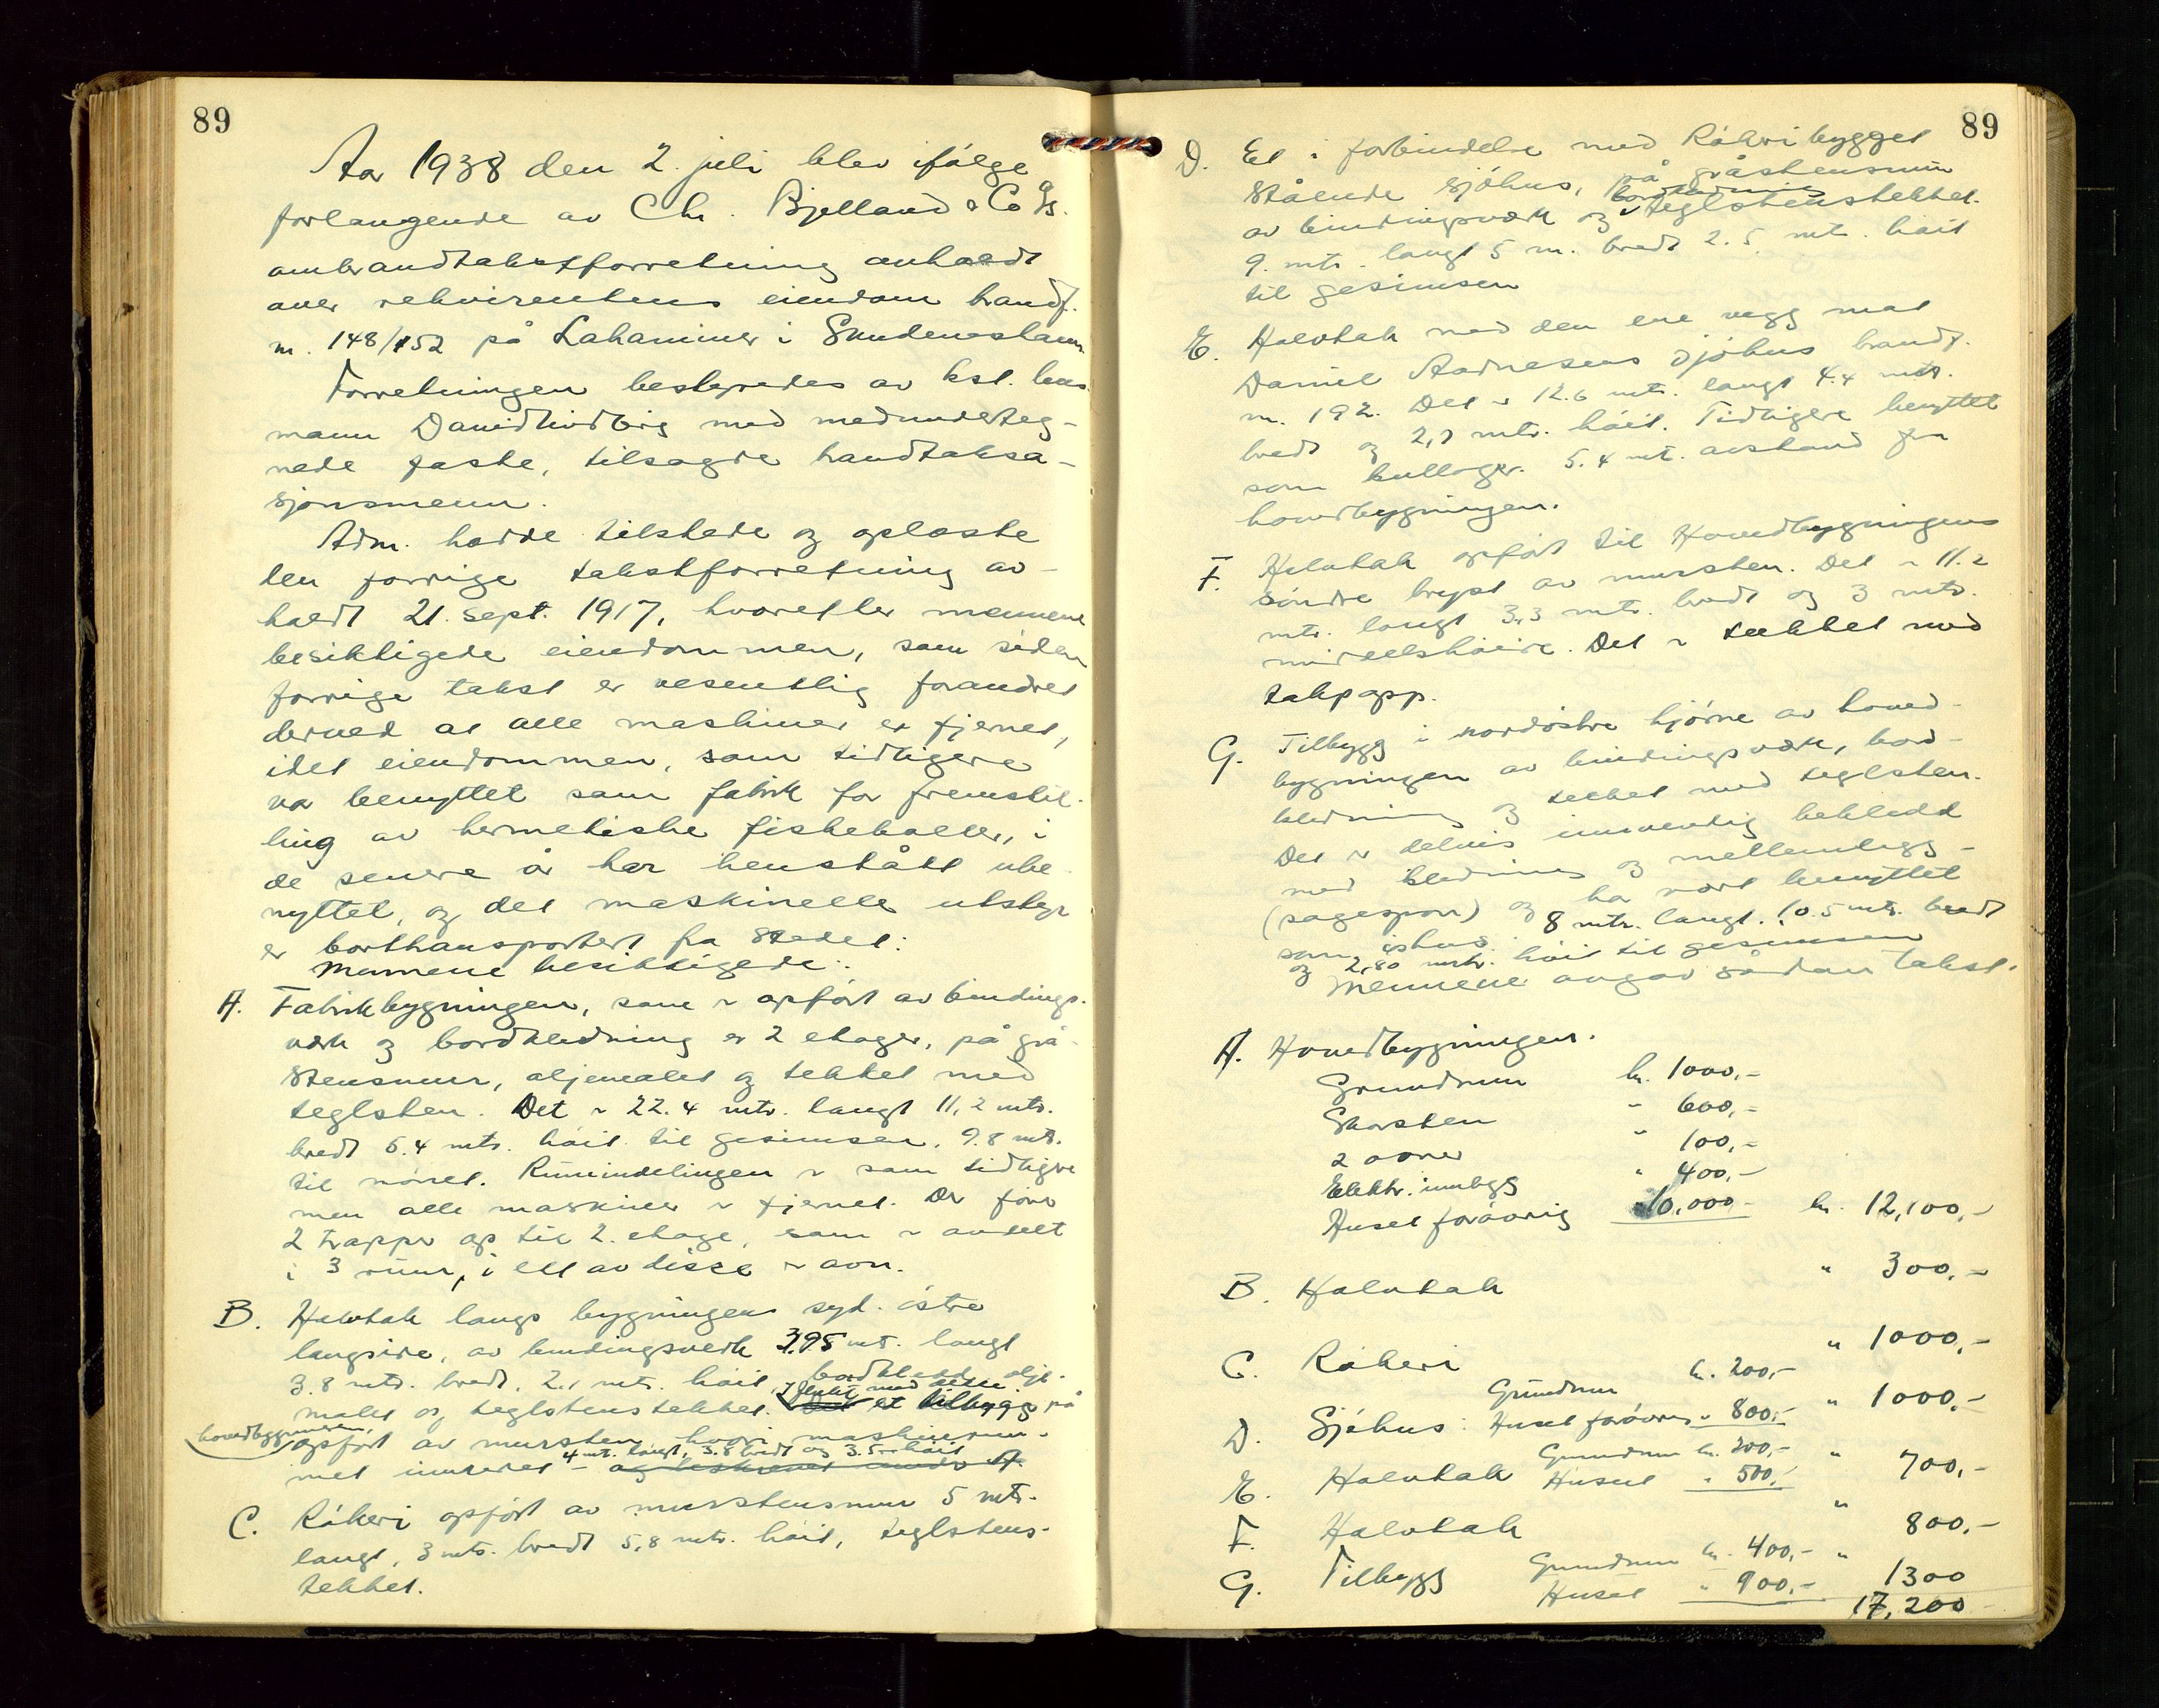 89
Aar 1938 den 2. juli blev ifølge
forlangende av Chr. Bjelland & Co A/s.
ombrandtakstforretning avholdt
over rekvirentens eiendom brandf.
nr. 148/152 på Lahammer i Skudeneshavn.
Forretningen bestyredes av kst. lens
mann David med medunderteg-
nede faste, tilsagde brandtaksa-
sjonsmenn.
Adm. hadde tilstede og oplæste
den forrige takstforretning av-
holdt 21. sept. 1917, hvorefter mennene
besiktigede eiendommen, som siden
forrige takst er vesentlig forandret
derved at alle maskiner er fjernet,
idet eiendommen, som tidligere
var benyttet som fabrik for fremstil-
ling av hermetiske fiskeboller, i
de senere år har henstått ube
nyttet, og det maskinelle utstyr
er borttransportert fra stedet.
Mennene besiktigede:
A. Fabrikbygningen, som er opført av bindings-
verk og bordkledning er 2 etager, på grå-
stensmur, oljemalet og tekket med
teglsten. Det er 22.4 mtr. langt 11,2 mtr.
bredt 5.4 mtr. høit til gesimsen. 9.8 mtr.
til mønet. Ruminndelingen er som tidligere
men alle maskiner er fjernet. Der fører
2 trapper op til 2. etage, som er avdelt
i 3 rum, i ett av disse er ovn.
B. Halvtak langs bygningens syd-østre
langside, av bindingsverk 3,95 mtr. langt
3.8 mtr. bredt, 2.1 mtr. høit, bordkledd olje-
malet og teglstenstekket. I flukt med dette er tilbygg på
hovedbygningen,
opført av mursten hvori maskinrum-
met innredet - 4 mtr. langt, 3.8 bredt og 3.5 høit
C. Røkeri opført av murstensmur 5 mtr.
langt, 3 mtr. bredt 5,8 mtr. høit, teglstens-
tekket.
89
D. Et i forbindelse med Røkeribygget
stående sjøhus, på gråstensmur
av bindingsverk og bordkledning teglstenstekket.
9. mtr. langt 5 m. bredt 2.5 mtr. høit
til gesimsen
E. Halvtak med den ene vegg mot
Daniel Aadnesens sjøhus brandf.
nr. 192. Det er 12.6 mtr. langt 4.4 mtr.
bredt og 2,7 mtr. høit. Tidligere benyttet
som kullager. 5.4 mt. avstand fra
hovedbygningen.
F. Halvtak opført til Hovedbygningens
søndre bryst av mursten. Det er 11.2
mtr. langt 3,3 mtr. bredt og 3 mtr.
middelshøide. Det er tekket med
takpapp.
G. Tilbygg i nordøstre hjørne av hoved-
bygningen av bindingsverk, bord-
kledning og tekket med teglsten.
Det er delvis innvendig bekledd
med kledning og mellemlegg-
(sagespon) og har vært benyttet
som ishus. 8 mtr. langt. 10.5 mtr. bredt
og 2,80 mtr. høit til gesimsen
Mennene avgav sådan takst.
A. Hovedbygningen.
Grundmur kr. 1000,-
Skorsten " 600,-
2 ovner " 100,-
Elektr. innlegg " 400,-
Huset forøvrig 10,000 - kr. 12,100,-
B. Halvtak " 300,-
C. Røkeri " 1000,-
D. Sjøhus: Grundmur kr. 200,-
Huset forøvrig " 800,- " 1000,-
E. Halvtak Grundmur kr. 200,-
Huset " 500,- " 700,-
F. Halvtak " 800,-
G. Tilbygg Grundmur kr. 400,-
Huset " 900,- " 1300
17,200